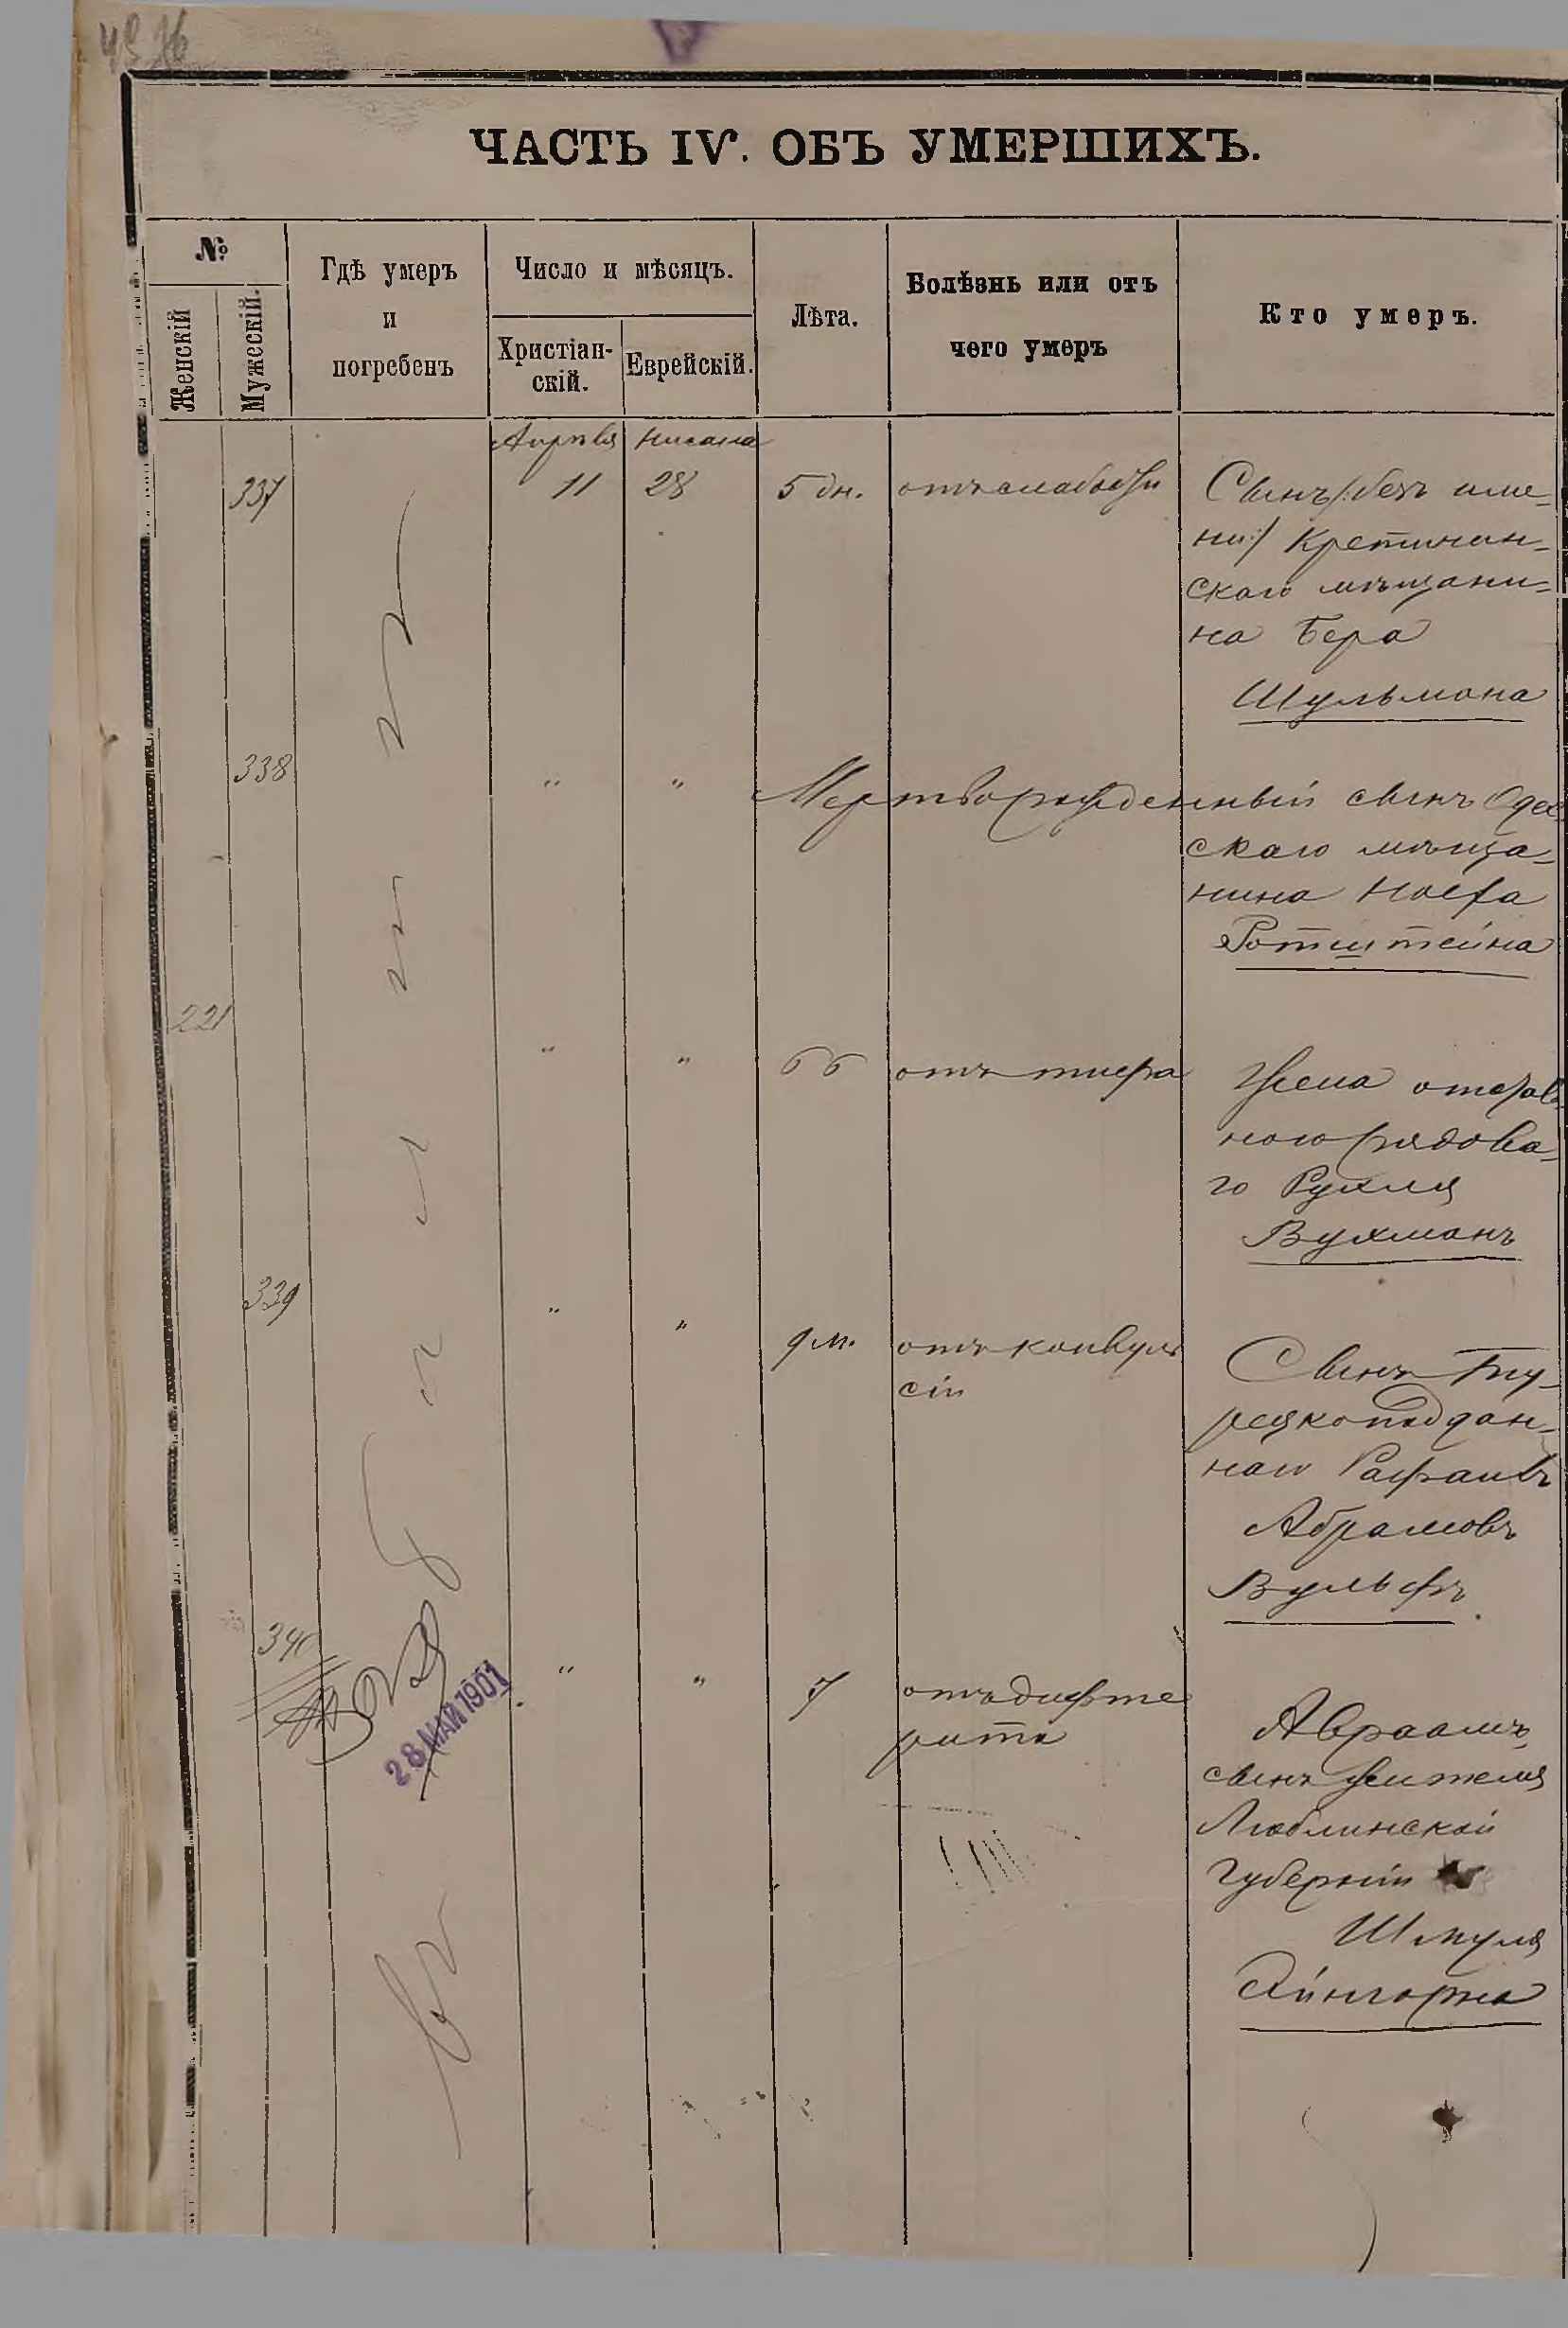 ЧАСТЬ IV. ОБЪ УМЕРШИХЪ.
№
Женскій
Мужескій.
Гдѣ умеръ
и
погребенъ
Число и мѣсяцъ.
Христіан-
скій.
Еврейскій.
Лѣта.
Болѣзнь или отъ
чего умеръ
Кто умеръ.
Апрѣля Нисана
337 11 28 5 дн. отъ слабости Сынъ /:безъ име-
ни:/ Кретинган-
скаго мѣщани-
на Бера
Шульмана
338 " " Мертворожденный сынъ Одес-
скаго мѣща-
нина
Ротштейна
221 " " 66 отъ тифа Жена отстав-
ного рядова-
го Рухля
Вухманъ
339 " " 9 м. отъ конвуль
сіи
Сынъ Ту-
рецкоподдан-
наго Рафаилъ
Абрамовъ
Вульфъ
340 " " 7 отъ дифте
рита
Авраамъ,
сынъ жителя
Люблинской
Губерніи
Шмуля
Айнгорна
въ
28 МАЙ 1901